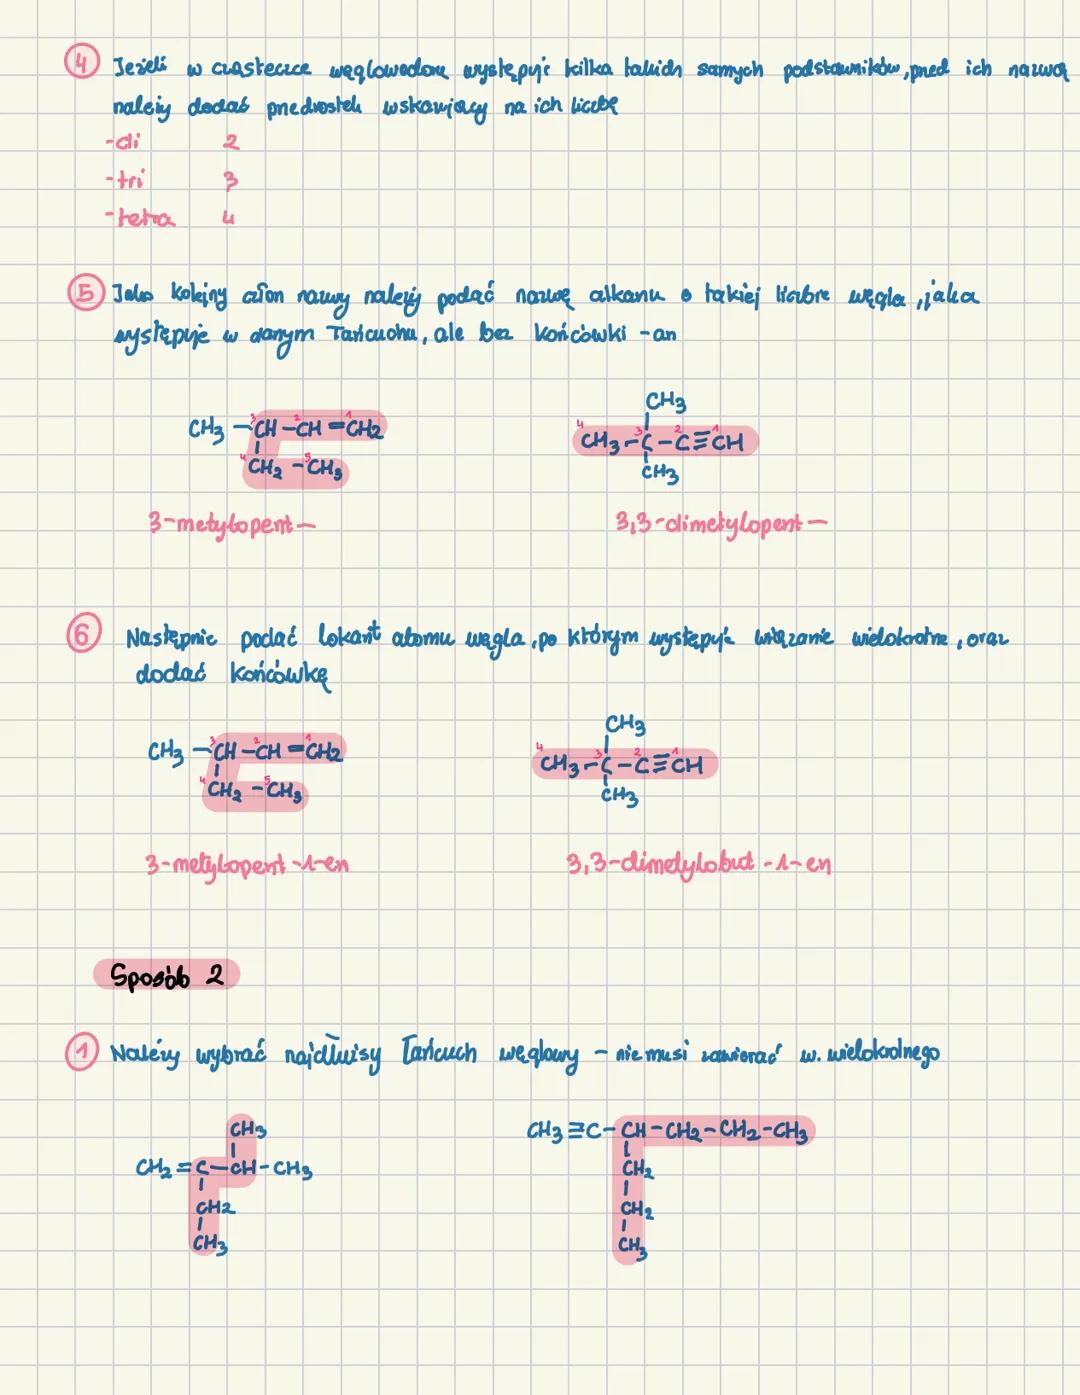 4 Jeżeli w cząsteczce węglowodoru występuje kilka takich samych podstawników, przed ich nazwą
należy dodać przedrostek wskazujący na ich liczbę
-di 2
-tri 3
-tetra 4
5 Jako kolejny człon nazwy należy podać nazwę alkanu o takiej liczbie węgla, jaka
występuje w danym łańcuchu, ale bez końcówki -an
CH3
3 2 1
CH3 - CH - CH = CH2
4 3 2 1
CH3 - C - C ≡ CH
4 5
CH2 - CH3
CH3
3-metylopent-
3,3-dimetylopent-
6 Następnie podać lokant atomu węgla, po którym występuje wiązanie wielokrotne, oraz
dodać końcówkę
CH3
3 2 1
CH3 - CH - CH = CH2
4 3 2 1
CH3 - C - C ≡ CH
4 5
CH2 - CH3
CH3
3-metylopent-1-en
3,3-dimetylobut-1-en
Sposób 2
1 Należy wybrać najdłuższy łańcuch węglowy - nie musi zawierać w. wielokrotnego
CH3
CH3 ≡ C - CH - CH2 - CH2 - CH3
CH2 = C - CH - CH3
CH2
CH2
CH2
CH3
CH3